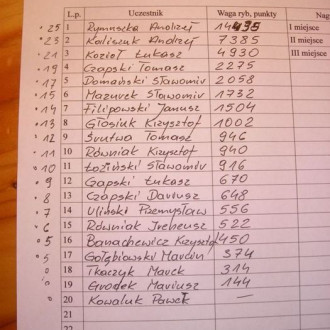 L.p. Uczestnik Waga ryb, punkty Nag
25 1 Rymaszka Andrzej 14435 I miejsce
23 2 Kaliszuk Andrzej 7385 II miejsce
21 3 Kozioł Łukasz 4930 III miejsce
19 4 Czapski Tomasz 2275
17 5 Domański Sławomir 2058
15 6 Mazurek Sławomir 1732
14 7 Filipowski Janusz 1504
13 8 Głasiuk Krzysztof 1002
12 9 Tomasz 946
11 10 Równiak Krzysztof 940
10 11 Łoziński Sławomir 916
9 12 Czapski Łukasz 670
8 13 Czapski Dariusz 648
7 14 Uliński Przemysław 556
6 15 Równiak Ireneusz 522
5 16 Banachewicz Krzysztof 450
17 Gołębiowski Marcin 374
18 Tkaczyk Marek 314
19 Grodek Mariusz 144
20 Kowaluk Paweł —
21
22